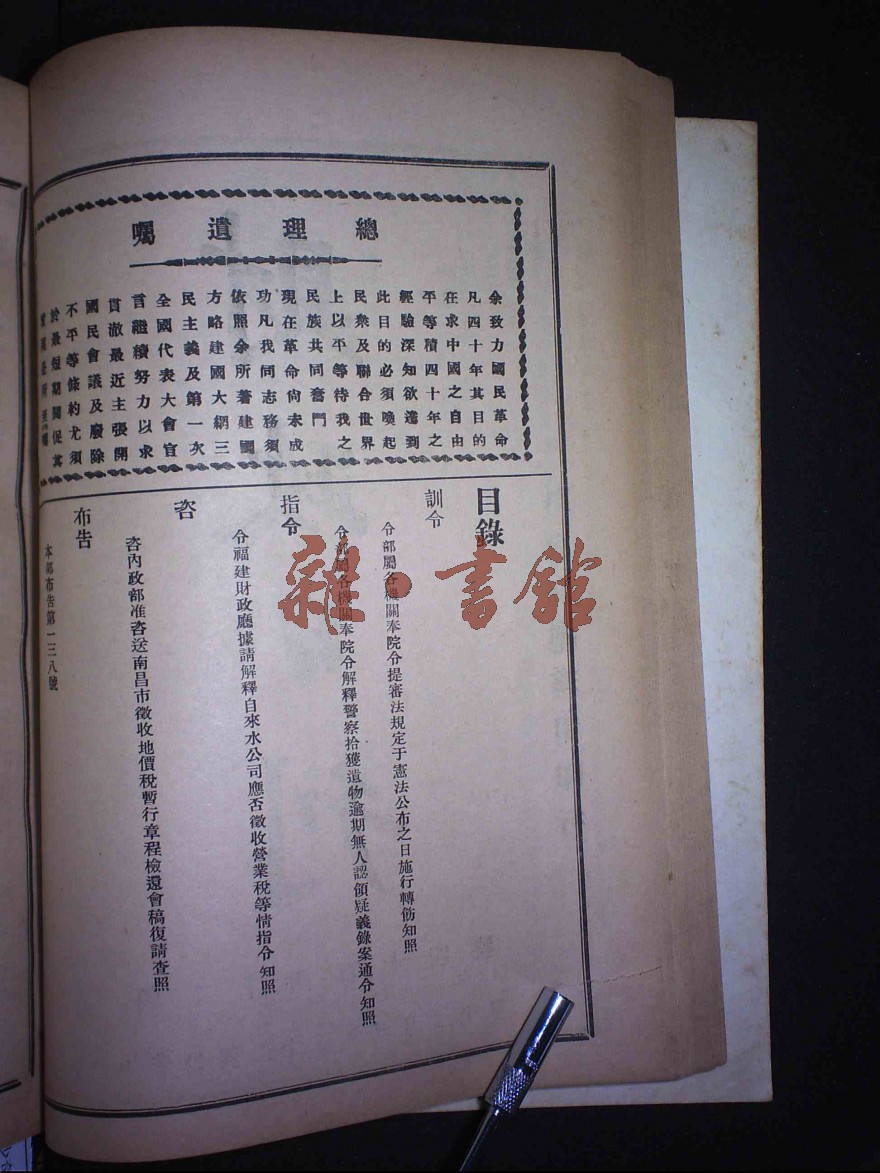 總理遺囑
余致力國民革命
凡四十年其目的
在求中國之自由
平等積四十年之
經驗深知欲達到
此目的必須喚起
民衆及聯合世界
上以平等待我之
民族共同奮鬥
現在革命尚未成
功凡我同志務須
依照余所著建國
方略建國大綱三
民主義及第一次
全國代表大會宣
言繼續努力以求
貫澈最近主張開
國民會議及廢除
不平等條約尤須
於最短期間促其
目錄
訓令
令部屬各機關奉院令提審法規定于憲法公布之日施行轉飭知照
令部屬各機關奉院令解釋警察拾獲遺物逾期無人認領疑義錄案通令知照
指令
令福建財政廳據請解釋自來水公司應否徵收營業稅等情指令知照
咨
咨內政部准咨送南昌市徵收地價稅暫行章程檢還會稿復請查照
布告
本部布告第一三八號
雜·書館